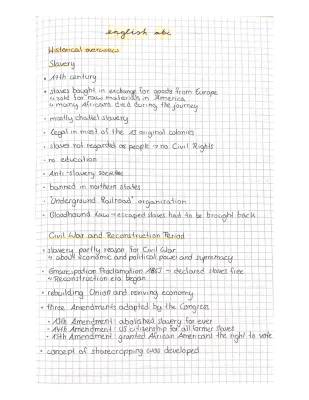 english abi
Historical overview
Slavery
• 17th century
• slaves bought in exchange for goods from Europe
↳ sold for raw materials in America
↳ many Africans died during the journey
• mostly chattel slavery
• legal in most of the 13 original colonies
• slaves not regarded as people → no Civil Rights
• no education
• Anti-slavery societies
• banned in northern states
• "Underground Railroad" organization
• Bloodhound Law → escaped slaves had to be brought back
Civil War and Reconstruction Period
• slavery partly reason for Civil War
↳ about economic and political power and supremacy
• Emancipation Proclamation 1863 → declared slaves free
↳ Reconstruction era began
• rebuilding Union and reviving economy
• three Amendments adopted by the Congress
• 13th Amendment: abolished slavery for ever
• 14th Amendment: US citizenship for all former slaves
• 15th Amendment: granted African Americans the right to vote
• concept of sharecropping was developed